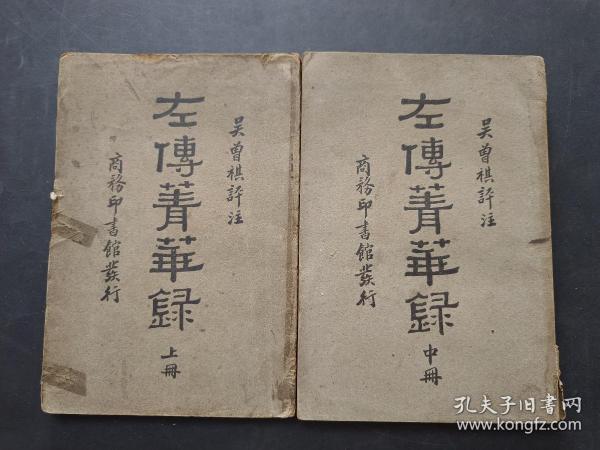 吴曾祺評注
左傳菁華録
上冊
商務印書館發行
吴曾祺評注
左傳菁華録
中冊
商務印書館發行
孔夫子旧書网
www.kongfz.com